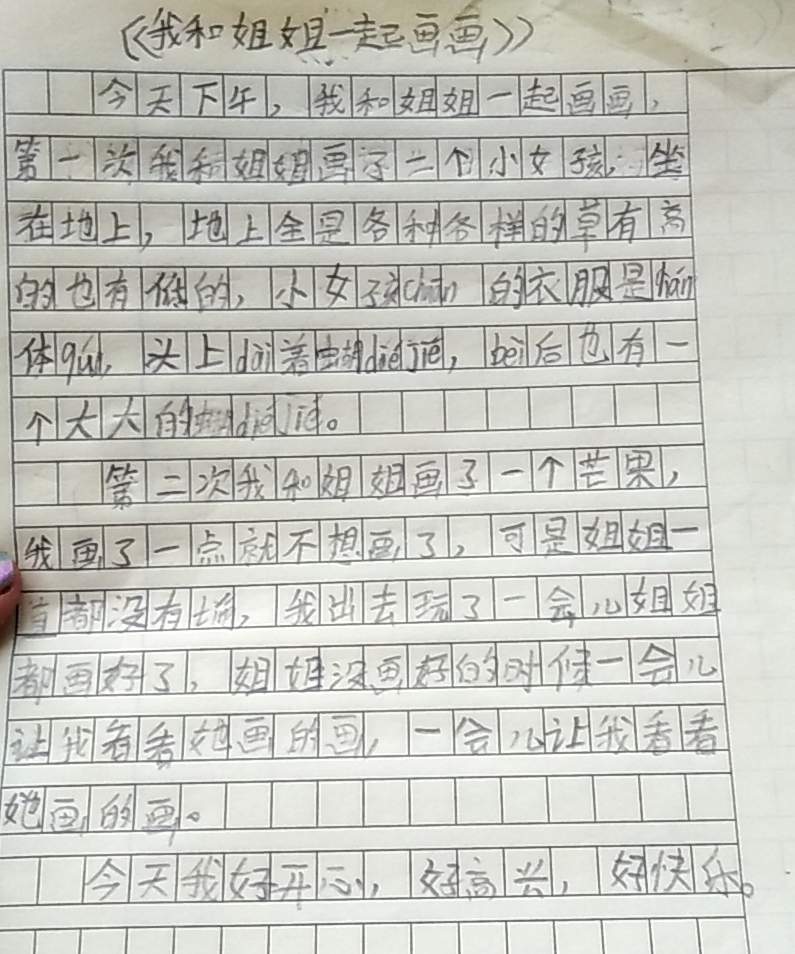 《我和姐姐一起画画》
今天下午，我和姐姐一起画画，
第一次我和姐姐画了一个小女孩，坐
在地上，地上全是各种各样的草有高
的也有低的，小女孩chuān的衣服是hán
体qún，头上dài着蝴dié jié，bèi后也有一
个大大的蝴dié jié。
第二次我和姐姐画了一个芒果，
我画了一点就不想画了，可是姐姐一
直都没有，我出去玩了一会儿姐姐
都画好了，姐姐没画好的时候一会儿
让我看看她画的画，一会儿让我看看
她画的画。
今天我好开心，好高兴，好快乐。